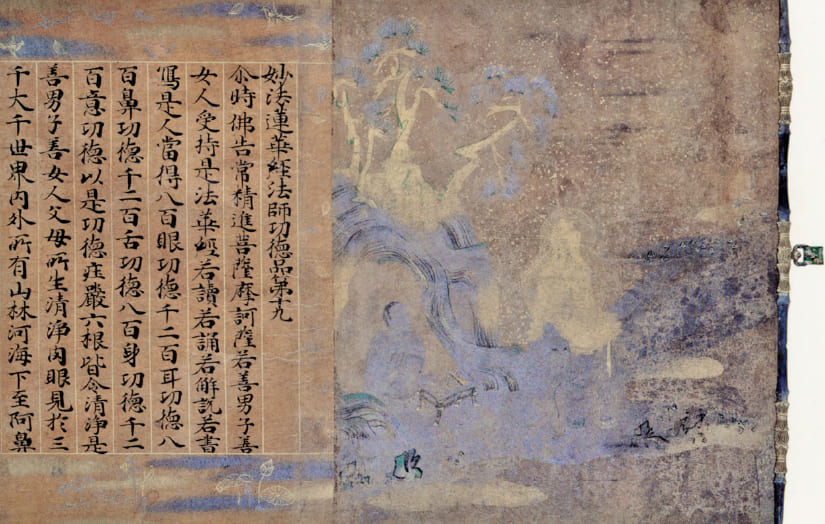 妙法蓮華經法師功徳品第十九
尒時佛告常精進菩薩摩訶薩若善男子善
女人受持是法華經若讀若誦若解説若書
寫是人當得八百眼功徳千二百耳功徳八
百鼻功徳千二百舌功徳八百身功徳千二
百意功徳以是功徳莊嚴六根皆令清淨是
善男子善女人父母所生清淨肉眼見於三
千大千世界内外所有山林河海下至阿鼻